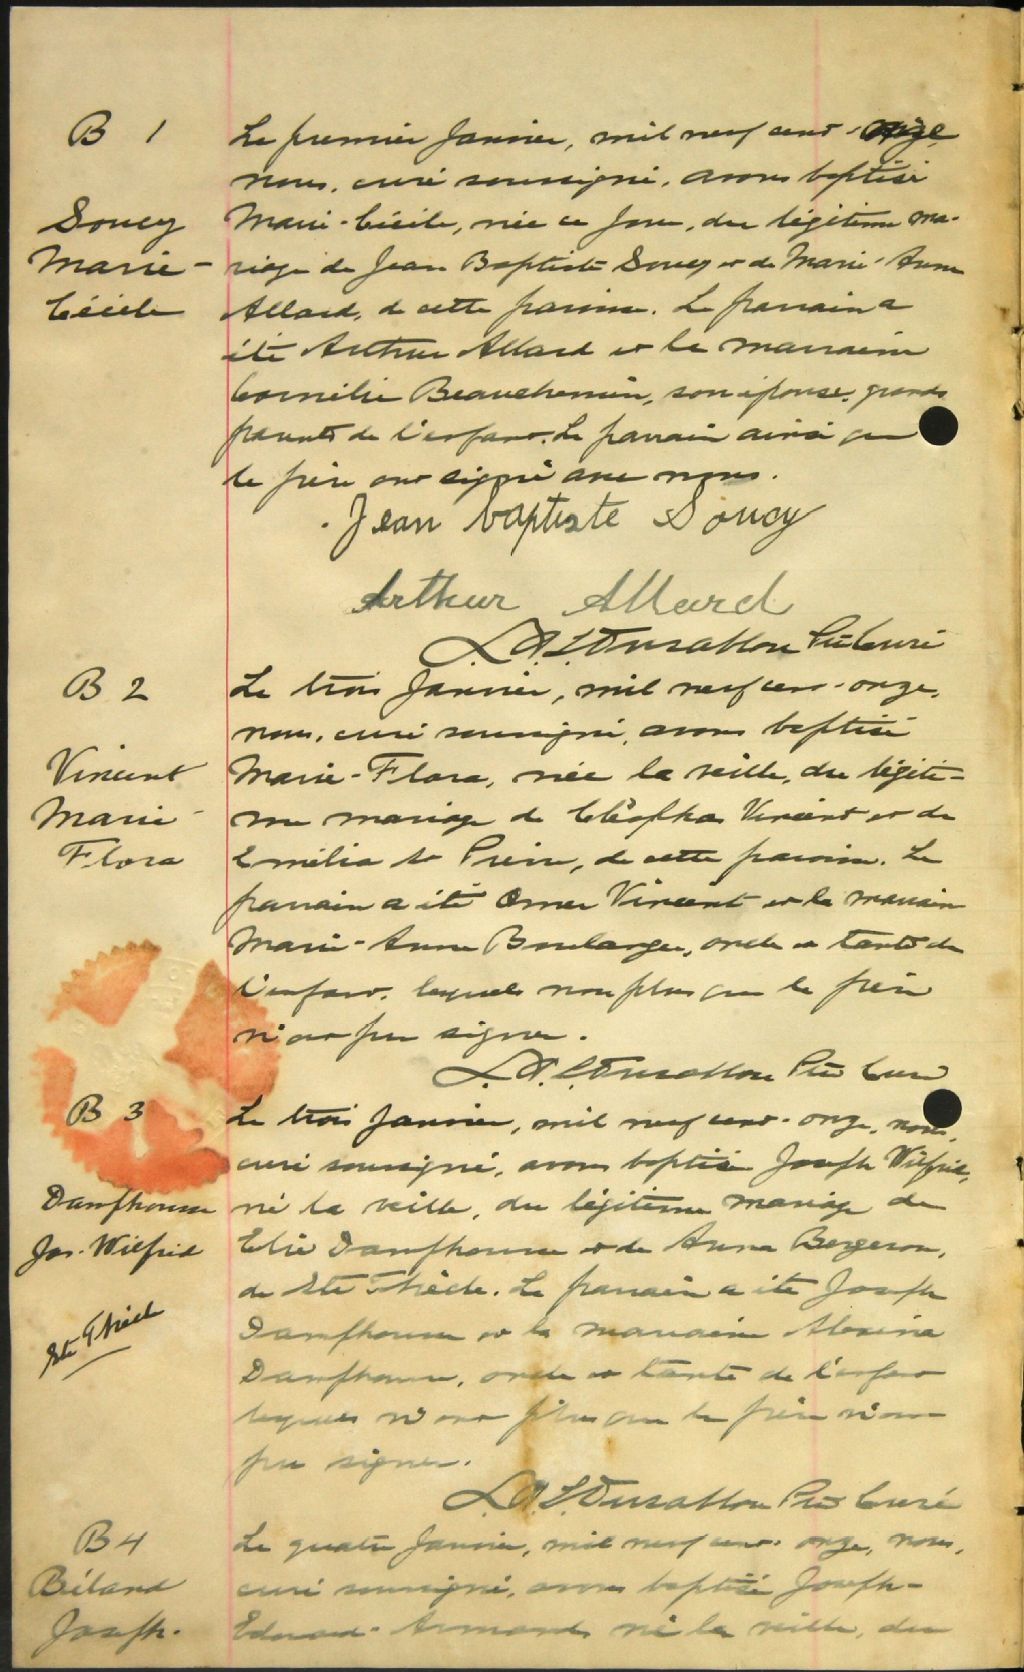 B 1
Soucy
Marie-
Cécile
Le premier Janvier, mil neuf cent-onze,
nous, curé soussigné, avons baptisé
Marie-Cécile, née ce jour, du légitime ma-
riage de Jean Baptiste Soucy et de Marie-Anne
Allard, de cette paroisse. Le parrain a
été Arthur Allard et la marraine
Cornélie Beauchemin, son épouse, grands
parents de l'enfant. Le parrain ainsi que
le père ont signé avec nous.
Jean baptiste Soucy
Arthur Allard
Ptre Curé
B 2
Vincent
Marie-
Flora
Le trois Janvier, mil neuf cent-onze,
nous, curé soussigné, avons baptisé
Marie-Flora, née la veille, du légiti-
me mariage de Cléophas Vincent et de
Emélia St Pierre, de cette paroisse. Le
parrain a été Omer Vincent et la marraine
Marie-Anne Boulanger, oncle et tante de
l'enfant, lesquels non plus que le père
n'ont pu signer.
Ptre Curé
B 3
Danphousse
Jos. Wilfrid
Ste Thècle
Le trois Janvier, mil neuf cent-onze, nous,
curé soussigné, avons baptisé Joseph Wilfrid,
né la veille, du légitime mariage de
Elie Danphousse et de Anna Bergeron,
de Ste Thècle. Le parrain a été Joseph
Danphousse et la marraine Alexina
Danphousse, oncle et tante de l'enfant
lesquels plus que le père n'ont
pu signer.
Ptre Curé
B 4
Béland
Joseph-
Le quatre Janvier, mil neuf cent-onze, nous,
curé soussigné, avons baptisé Joseph-
Edouard-Armand, né la veille, du